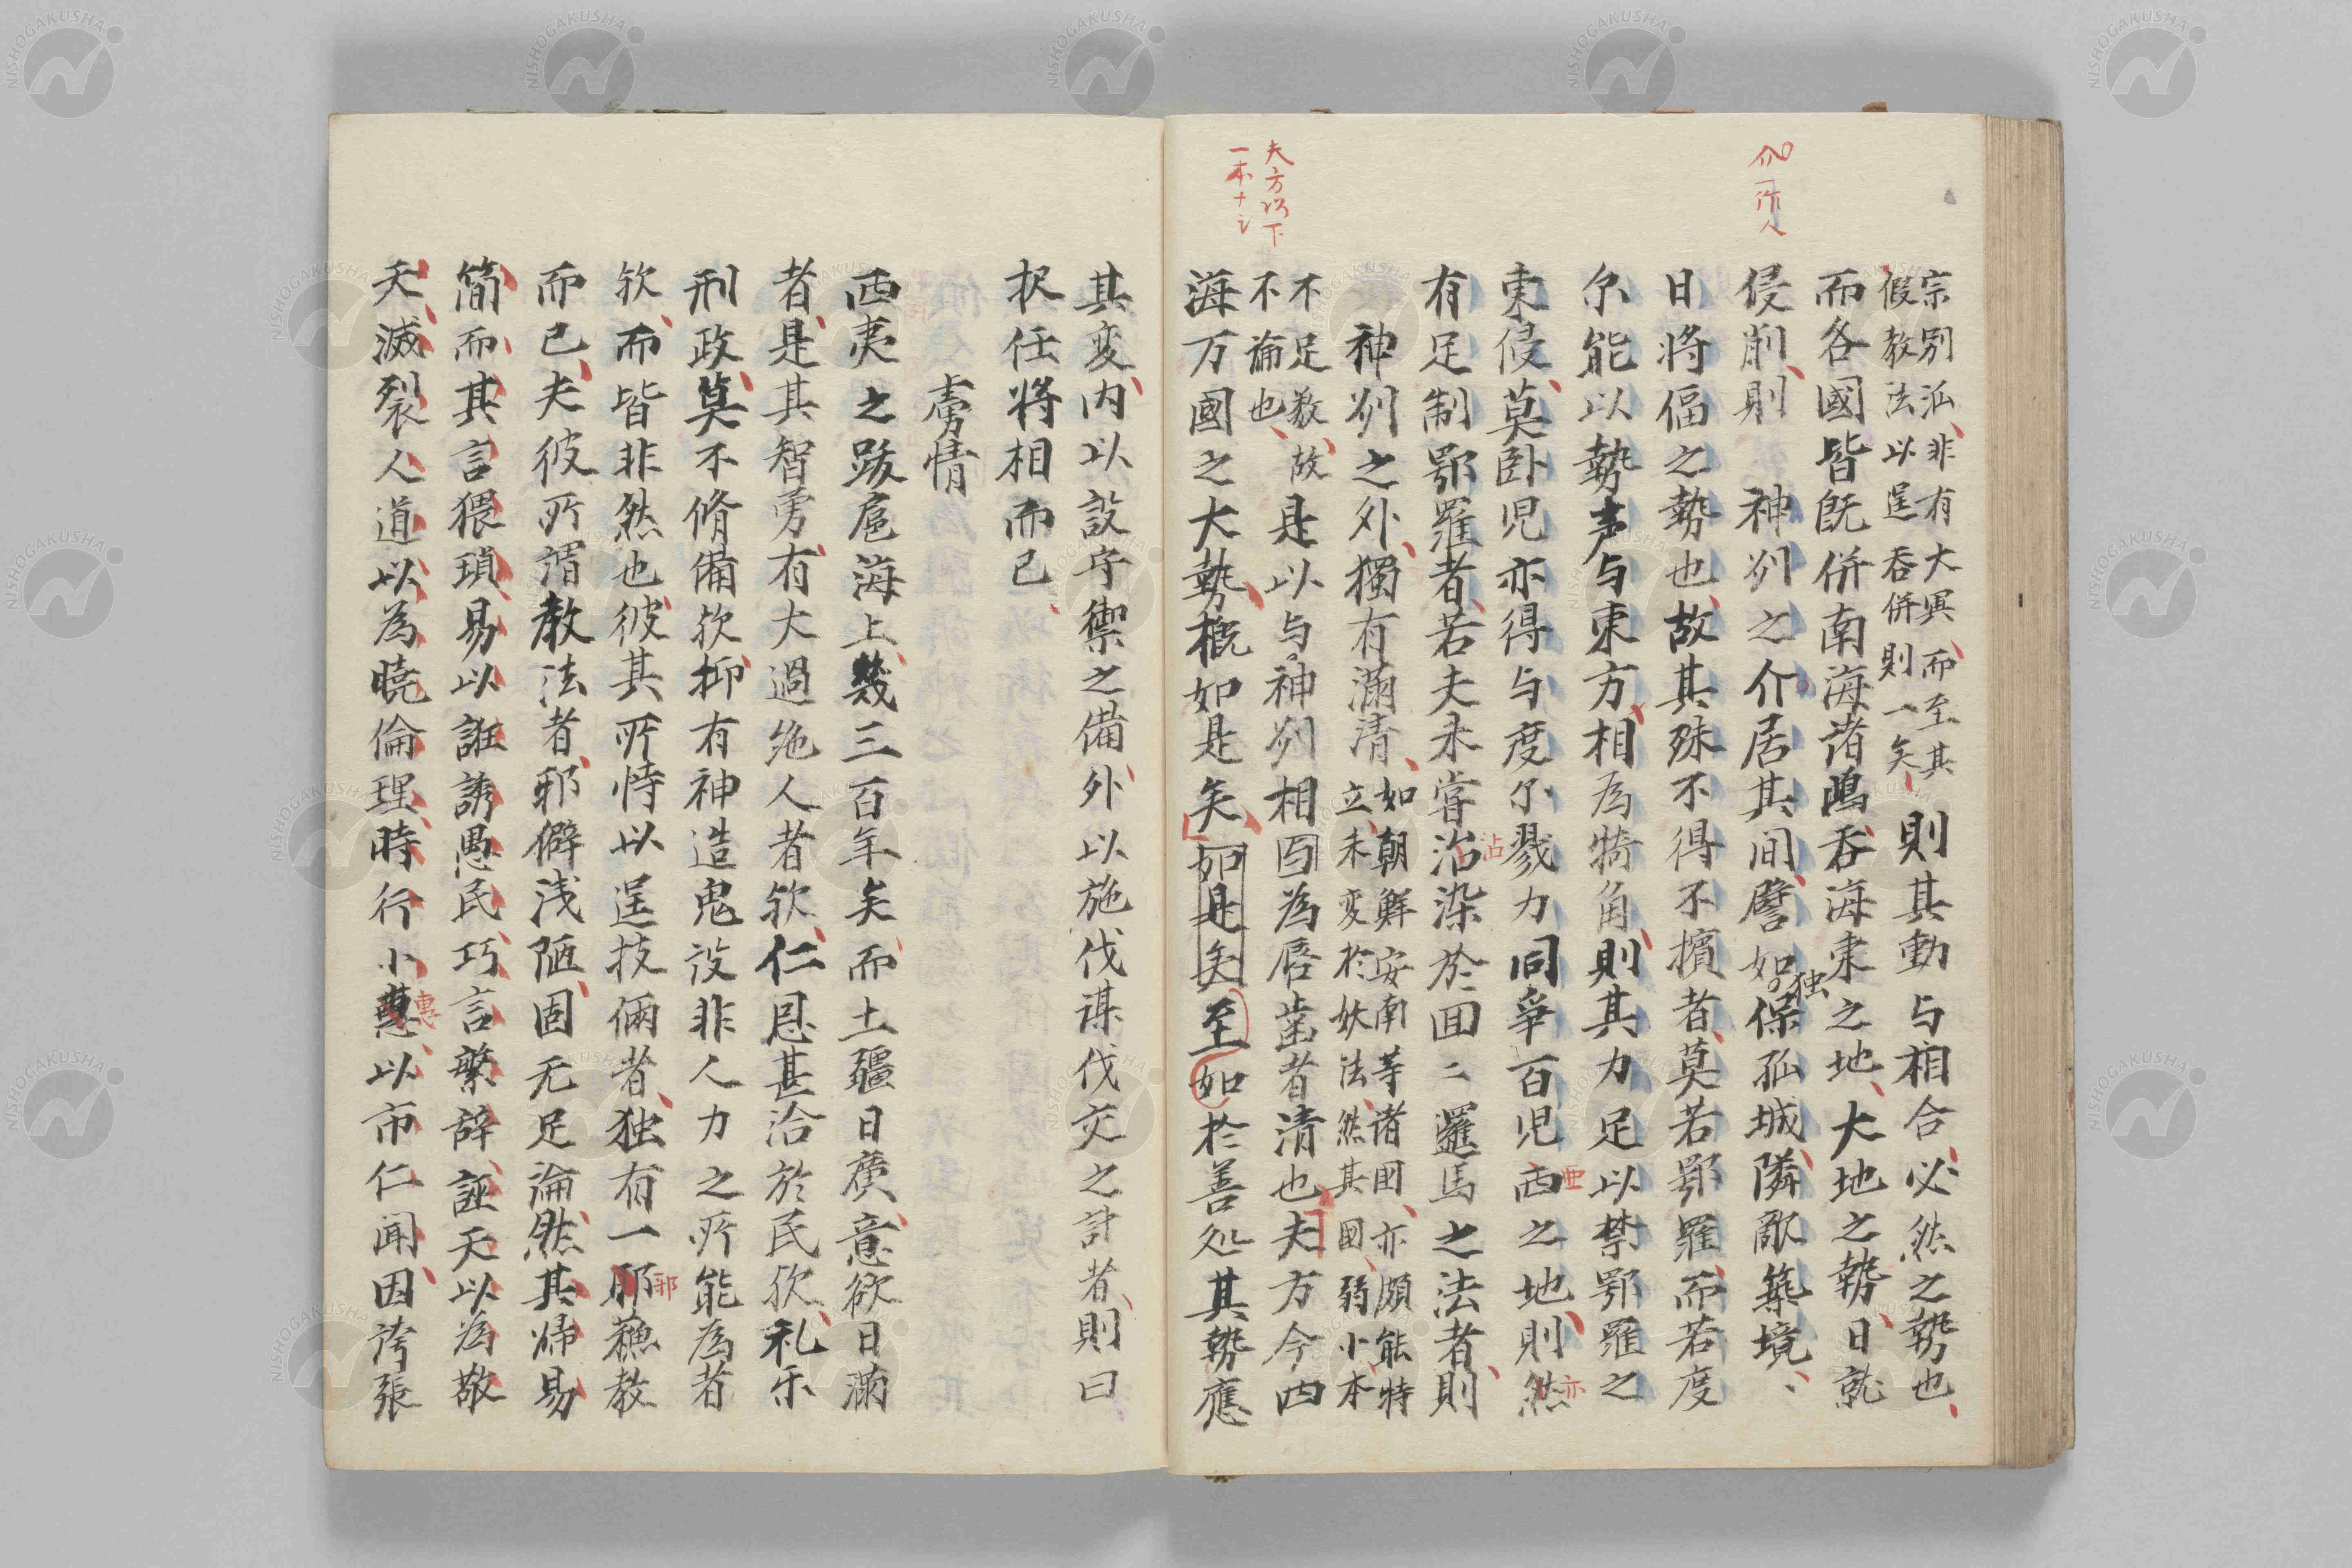 伱一作人
夫方以下
一本十之
宗別派非有大異而至其
假教法以逞呑併則一矣
則其動与相合必然之勢也
而各國皆既併南海諸嶋呑海東之地大地之勢日就
侵削則　神州之介居其间譬如独保孤城隣敵築境
日將偪之勢也故其殊不得不擯者莫若鄂羅而若度
尓能以勢声与東方相為犄角則其力足以禁鄂羅之
東侵莫臥児亦得与度尓戮力同爭百児西之地則然
亜
亦
有足制鄂羅者若夫未嘗治染於囬二邏馬之法者則
沾
神州之外獨有滿清
如朝鮮安南等诸国亦頗能特
立未変於妖法然其国弱小本
不足数故
不論也
是以与神州相因為唇歯者清也夫方今四
海万國之大勢概如是矣如是矣至如於善処其勢應
其変内以設守禦之備外以施伐謀伐交之計者則曰
択任将相而已
虜情
西夷之跋扈海上幾三百年矣而土疆日廣意欲日滿
者是其智勇有大過絶人者欤仁恩甚洽於民欤礼乐
刑政莫不脩備欤抑有神造鬼设非人力之所能為者
欤而皆非然也彼其所恃以逞技倆者独有一耶蘇教
邪
而已夫彼所謂教法者邪僻浅陋固无足論然其帰易
簡而其言猥瑣易以誑誘愚民巧言繁辞誣天以為敬
天滅裂人道以為暁倫理時行小惠以市仁闻因誇張
惠
NISHOGAKUSHA